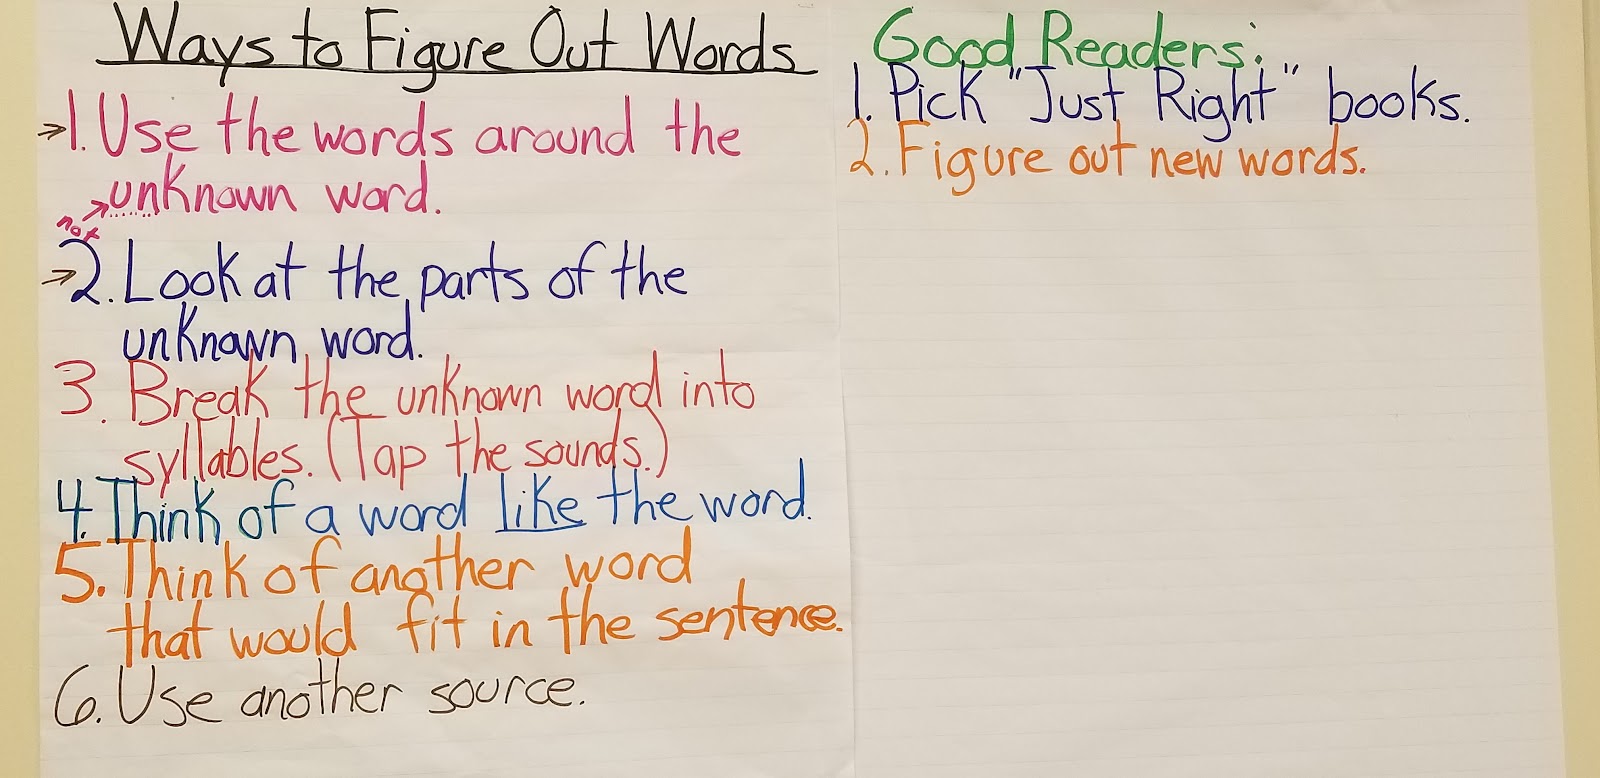 Ways to Figure Out Words
→1. Use the words around the
→unknown word.
not
→2. Look at the parts of the
unknown word.
3. Break the unknown word into
syllables. (Tap the sounds.)
4. Think of a word like the word.
5. Think of another word
that would fit in the sentence.
6. Use another source.
Good Readers:
1. Pick "Just Right" books.
2. Figure out new words.